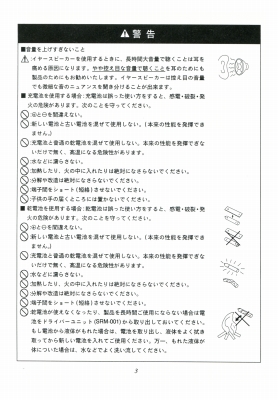 ⚠警告
■音量を上げすぎないこと
⚠イヤースピーカーを使用するときに、長時間大音量で聴くことは耳を
痛める原因になります。やや控え目な音量で聴くことを耳のためにも
製品のためにもお勧めいたします。イヤースピーカーは控え目の音量
でも微細な音のニュアンスを聞き分けることが出来ます。
■充電池を使用する場合:充電池は誤った使い方をすると、感電・破裂・発
火の危険があります。次のことを守ってください。
:⊕と⊖を間違えない。
:新しい電池と古い電池を混ぜて使用しない。(本来の性能を発揮でき
ません。)
:充電池と普通の乾電池を混ぜて使用しない。(本来の性能を発揮できな
いだけで無く、高温になる危険性があります。
:水などに濡らさない。
:加熱したり、火の中に入れたりは絶対にならないでください。
:分解や改造は絶対にならないでください。
:端子間をショート(短絡)させないでください。
:子供の手の届くところには置かないでください。
■乾電池を使用する場合:乾電池は誤った使い方をすると、感電・破裂・発
火の危険があります。次のことを守ってください。
:⊕と⊖を間違えない。
:新しい電池と古い電池を混ぜて使用しない。(本来の性能を発揮でき
ません。)
:充電池と普通の乾電池を混ぜて使用しない。(本来の性能を発揮できな
いだけで無く、高温になる危険性があります。
:水などに濡らさない。
:加熱したり、火の中に入れたりは絶対にならないでください。
:分解や改造は絶対にならないでください。
:端子間をショート(短絡)させないでください。
:乾電池が使えなくなったり、製品を長時間ご使用にならない場合は電
池をドライバーユニット(SRM-001)から取り出しておいてください。
もし電池から液体がもれた場合は、電池を取り出し、液体をよく拭き
取ってから新しい電池を入れてご使用ください。万一、もれた液体が
体についた場合は、水などでよく洗い流してください。
3